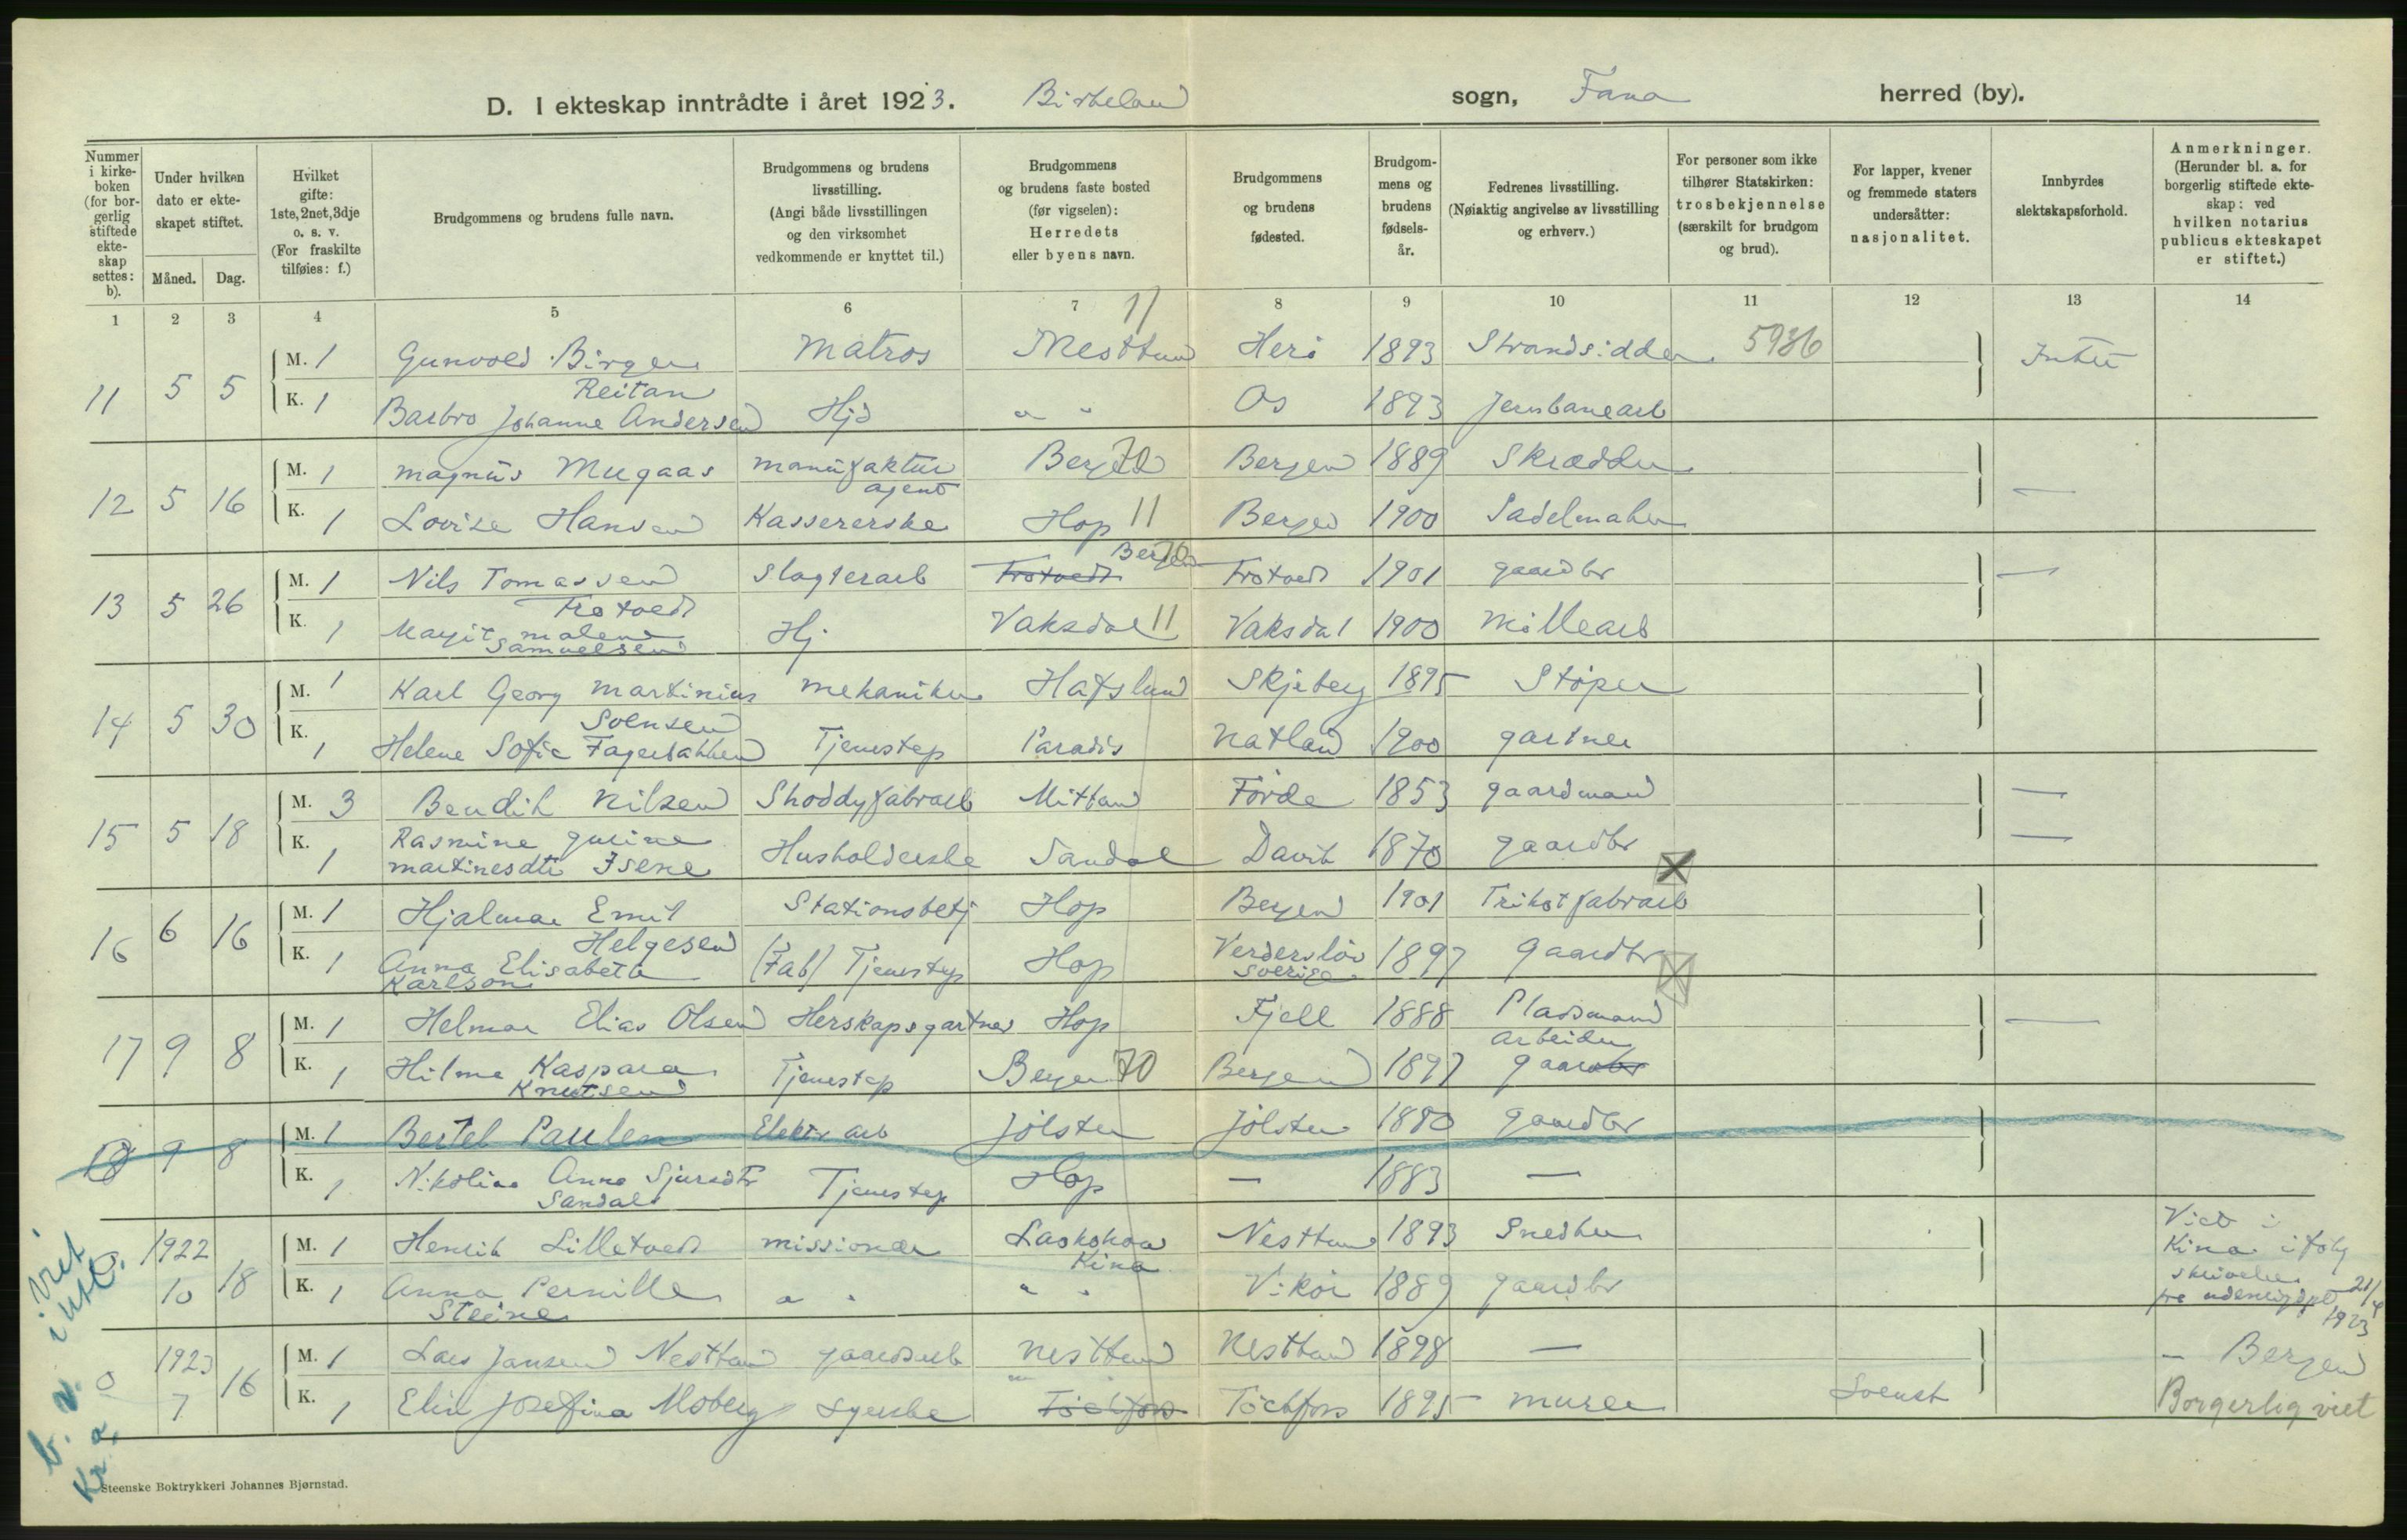 D. I ekteskap inntrådte i året 1923. Birkeland sogn, Fana herred (by).
Nummer i kirke-boken (for bor-gerlig stiftede ekte-skap settes: b).
Under hvilken dato er ekte-skapet stiftet.
Måned. Dag.
Hvilket gifte: 1ste, 2net, 3dje o. s. v. (For fraskilte tilføies: f.)
Brudgommens og brudens fulle navn.
Brudgommens og brudens livsstilling. (Angi både livsstillingen og den virksomhet vedkommende er knyttet til.)
Brudgommens og brudens faste bosted (før vigselen): Herredets eller byens navn.
Brudgommens og brudens fødested.
Brudgom-mens og brudens fødsels-år.
Fedrenes livsstilling. (Nøiaktig angivelse av livsstilling og erhverv.)
For personer som ikke tilhører Statskirken: trosbekjennelse (særskilt for brudgom og brud).
For lapper, kvener og fremmede staters undersåtter: nasjonalitet.
Innbyrdes slektskapsforhold.
Anmerkninger. (Herunder bl. a. for borgerlig stiftede ekte-skap: ved hvilken notarius publicus ekteskapet er stiftet.)
1 2 3 4 5 6 7 8 9 10 11 12 13 14
11
11 5 5 M. 1 Gunvold Birger Reitan Matros Nesttun Herö 1893 Strandsidder 5936 Intet
K. 1 Barbro Johanne Andersen Hjd " " Os 1893 Jernbanearb
12 5 16 M. 1 Magnus Mugaas Manufaktur agent Bergen 70 Bergen 1889 Skrædder —
K. 1 Lovise Hansen Kassererske Hop 11 Bergen 1900 Sadelmaker
13 5 26 M. 1 Nils Tomassen Trotvedt Slagterarb Trotvedt Bergen 70 Trotvedt 1901 gaardbr —
K. 1 Margit Malene Samuelsen Hj Vaksdal 11 Vaksdal 1900 Möllearb
14 5 30 M. 1 Karl Georg Martinius Svensen Mekaniker Hafslund Skjeberg 1895 Støper
K. 1 Helene Sofie Fagerbakken Tjenestep Paradis Natland 1900 gartner
15 5 18 M. 3 Bendik Nilsen Shoddyfabrarb Mittun Förde 1853 gaardmand —
K. 1 Rasmine Martinesdtr Isene Husholderske Sandal Davik 1870 gaardbr —
16 6 16 M. 1 Hjalmar Emil Helgesen Stationsbetj Hop Bergen 1901 Trikotfabrarb
K. 1 Anna Elisabeta Karlson (Fab) Tjenestep Hop Verderslöv Sverige 1897 Gaardbr
17 9 8 M. 1 Helmar Elias Olsen Herskapsgartner Hop Fjell 1888 Plassmand —
K. 1 Hilma Kaspara Knutsen Tjenestep Bergen 70 Bergen 1897 Arbeider gaardbr
18 9 8 M. 1 Bertel Paulen Elektr arb Jölster Jölster 1880 gaardbr
K. 1 Nikoline Anna Sjursdtr Sandal Tjenestep Hop — 1883 —
1922 10 18 M. 1 Henrik Lilletvedt Missionær Laohokow Kina Nesttun 1893 Snedker Viet i Kina ifølg skrivelse fra 21/4 1923
K. 1 Anna Pernille Steine " " " " Vikör 1889 gaardbr
1923 7 16 M. 1 Lars Jansen Nesttun gaardsarb Nesttun Nesttun 1898 — - Bergen
K. 1 Elin Josefina Moberg Syerske Töckfors Töckfors 1895 murer Svensk Borgerlig viet
Steenske Boktrykkeri Johannes Bjørnstad.